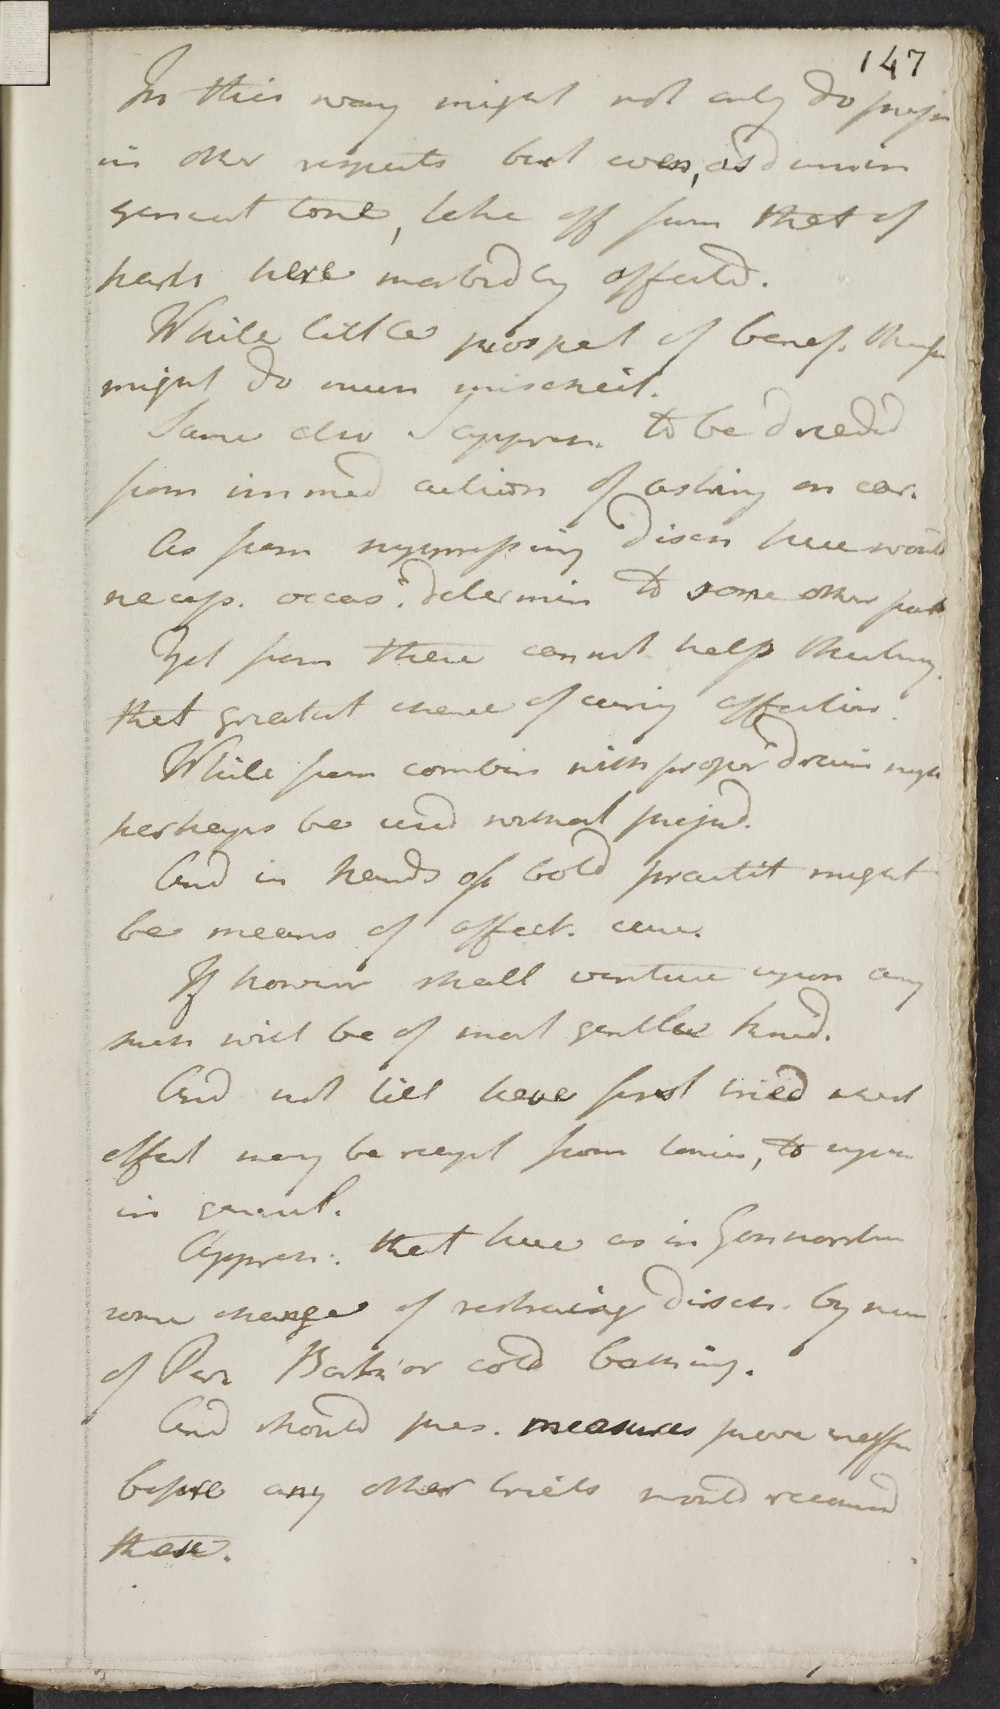 147
In this way might not only do prejud
in other respects but even, as dimin
general tone, take off from that of
parts here morbidly affected.
While little prospect of benef. therefore
might do much mischeif.
Same also I appreh. to be dreaded
from immed action of astring on ear.
As from suppressing disch here would
necess. occas. determin to some other part
Yet from these cannot help thinking
that greatest chance of curing affection.
While from combin with proper drain might
perhaps be used without prejud.
And in hands of bold practit might
be means of effect. cure.
If however shall venture upon any
such will be of most gentle kind.
And not till have first tried what
effect may be expect from tonics, to
in general.
Appreh. that here as in Gonnorrhœa
some change of restraing disch. by
of Peru Bark or cold bathing.
And should pres. measures prove ineff
before any other trials would recomnd
these.